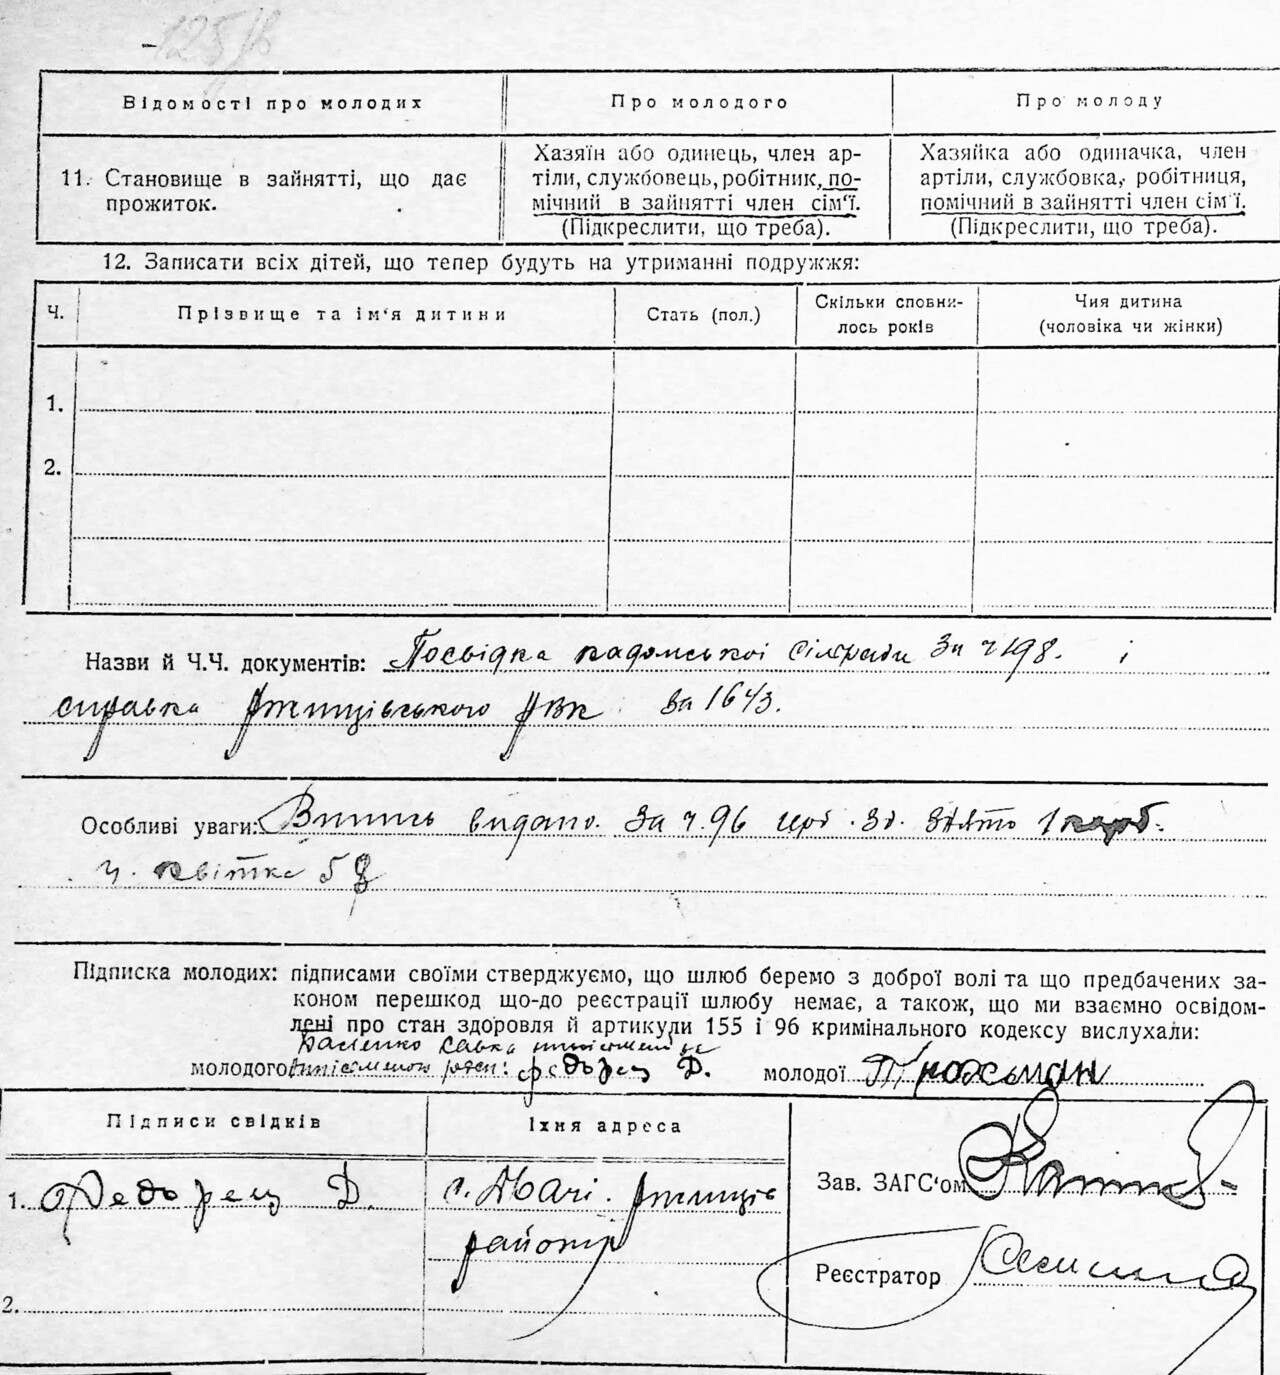 125/в
Відомості про молодих
Про молодого
Про молоду
11. Становище в зайнятті, що дає
прожиток.
Хазяїн або одинець, член ар-
тіли, службовець, робітник, по-
мічний в зайнятті член сім'ї.
(Підкреслити, що треба).
Хазяйка або одиначка, член
артіли, службовка, робітниця,
помічний в зайнятті член сім'ї.
(Підкреслити, що треба).
12. Записати всіх дітей, що тепер будуть на утриманні подружжя:
Ч.
Прізвище та ім'я дитини
Стать (пол.)
Скільки сповни-
лось років
Чия дитина
(чоловіка чи жінки)
1.
2.
Назви й Ч.Ч. документів: Посвідка кадомської сільради за ч 198. і
справка Ржищівського РВК за 1643.
Особливі уваги: видано за ч. 96 знято 1 карб.
ч. квітка 5
Підписка молодих: підписами своїми стверджуємо, що шлюб беремо з доброї волі та що предбачених за-
коном перешкод що-до реєстрації шлюбу немає, а також, що ми взаємно освідом-
лені про стан здоровля й артикули 155 і 96 кримінального кодексу вислухали:
молодого Федорец Д. молодої
Підписи свідків
Їхня адреса
1. Федорец Д.
с. Ржищів
району
2.
Зав. ЗАГС'ом
Реєстратор